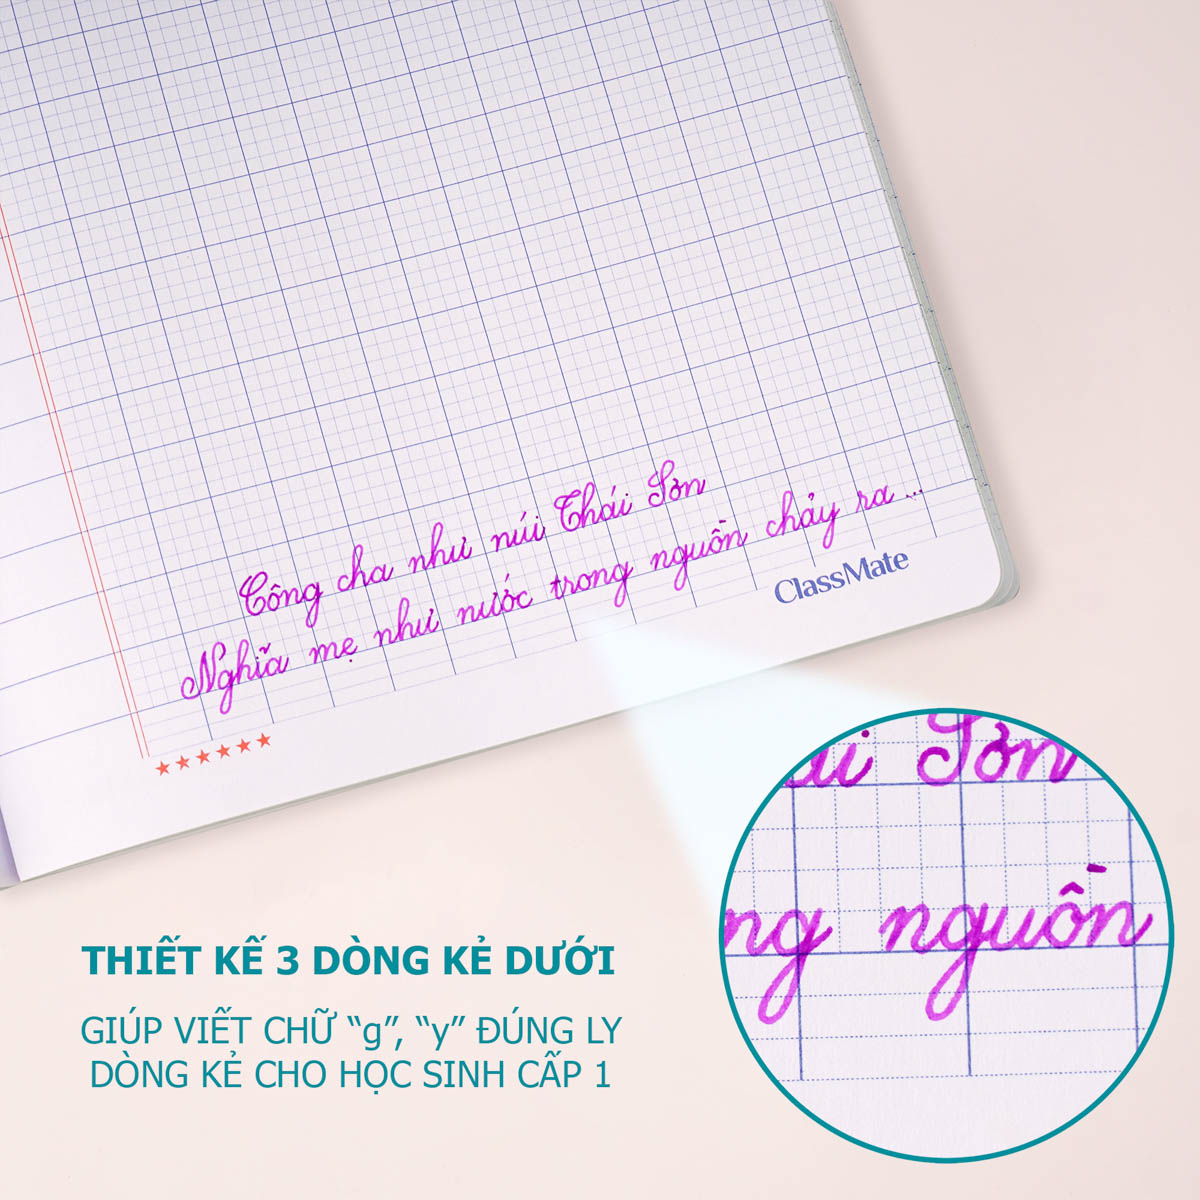 Công cha như núi Thái Sơn
Nghĩa mẹ như nước trong nguồn chảy ra...
ClassMate
★★★★★★
ái Sơn
ng nguồn
THIẾT KẾ 3 DÒNG KẺ DƯỚI
GIÚP VIẾT CHỮ “g”, “y” ĐÚNG LY
DÒNG KẺ CHO HỌC SINH CẤP 1